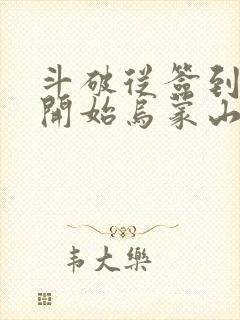 斗破從簽到
開始烏蒙山
韦大樂